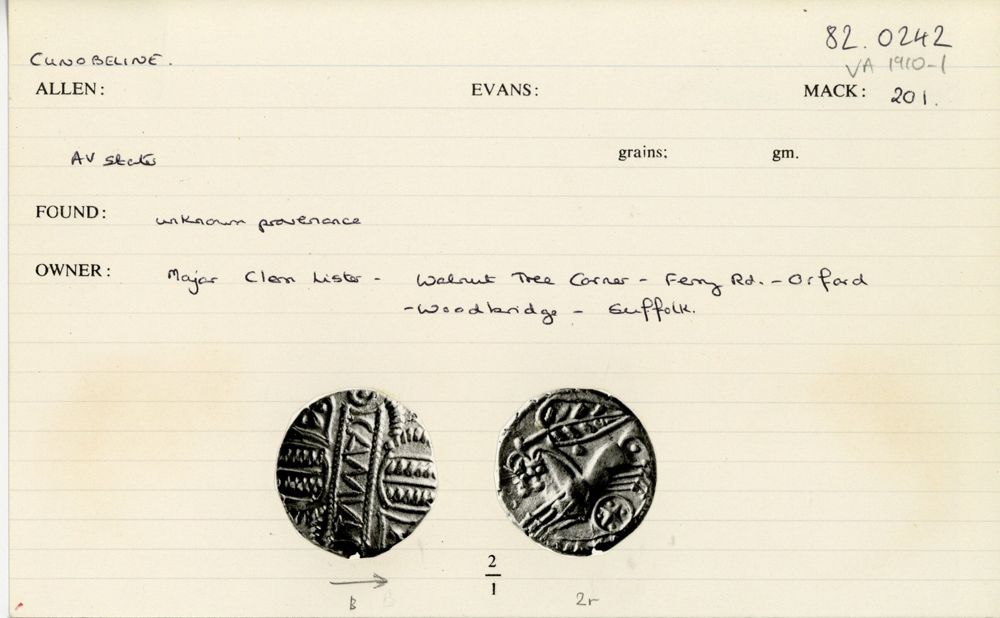 82.0242
CUNOBELINE.
VA 1910-1
ALLEN: EVANS: MACK: 201.
AV stater grains; gm.
FOUND: unknown provenance
OWNER: Major Clem Lister - Walnut Tree Corner - Ferry Rd. - Orford
- Woodbridge - Suffolk.
2
1
B B 2r